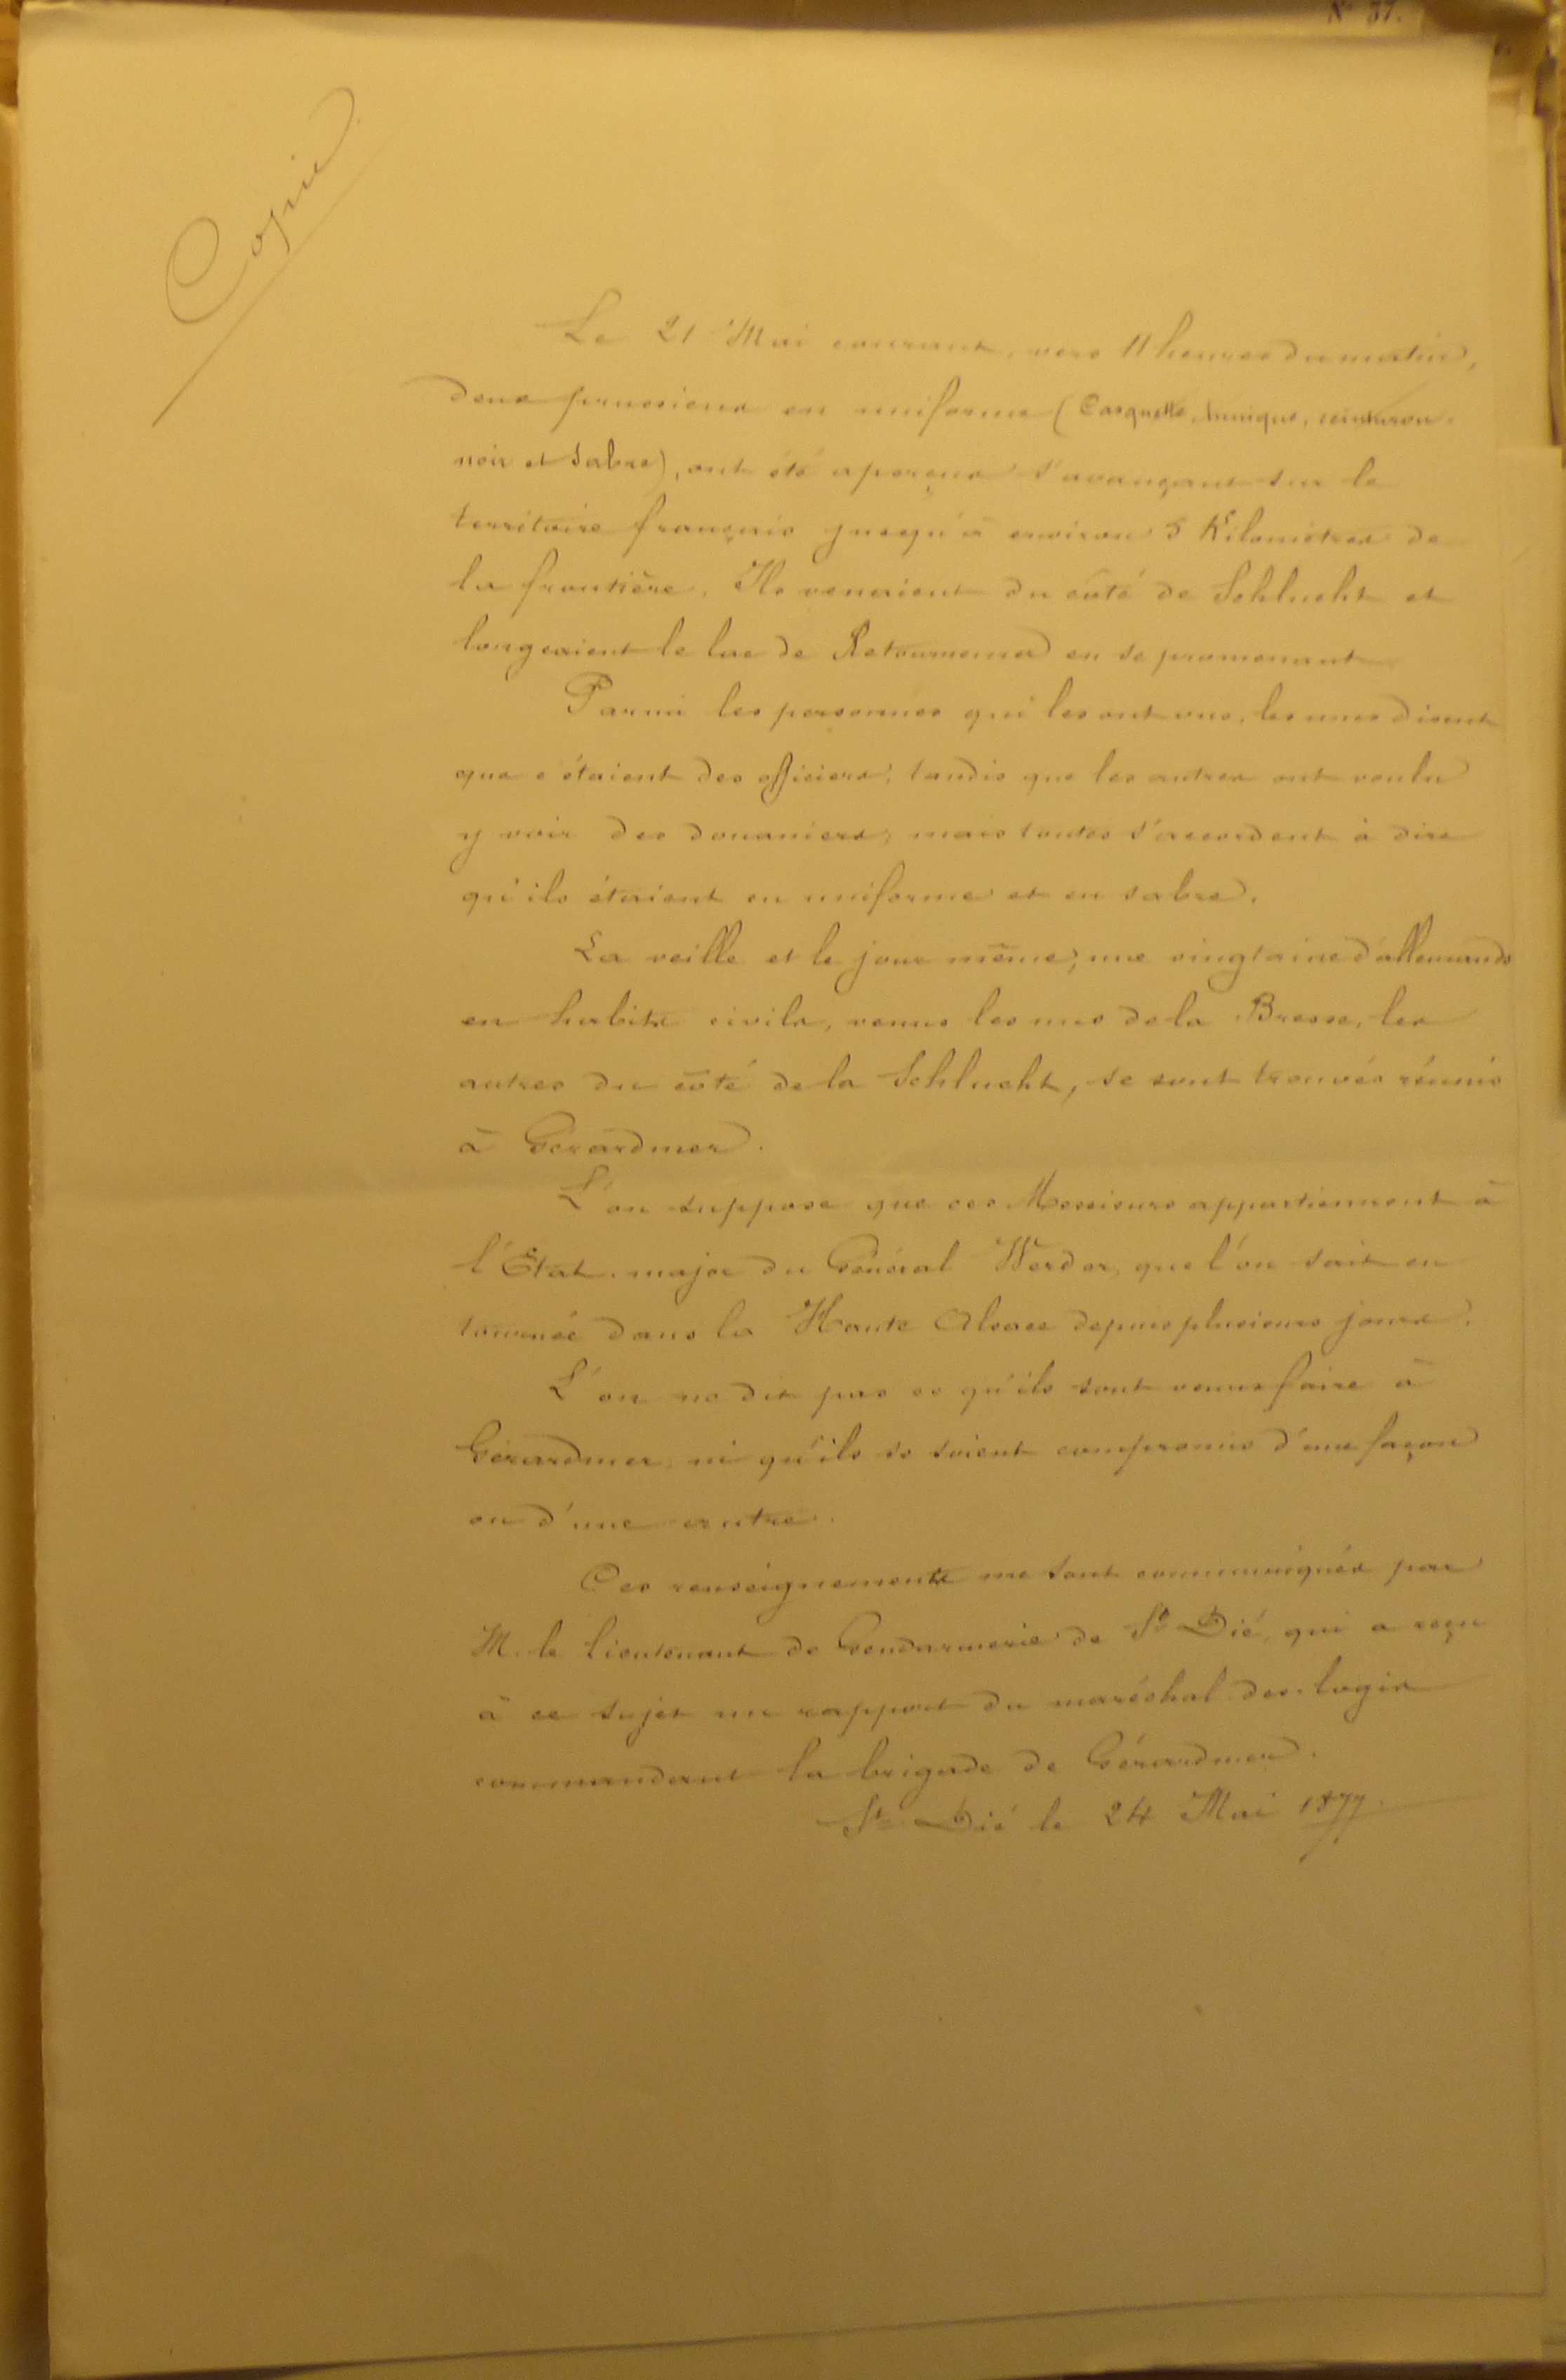 N° 37.
Copie
Le 21 Mai courant, vers 11 heures du matin,
deux prussiens en uniforme (Casquette, tunique, ceinturon
noir et sabre), ont été aperçus s'avançant sur le
territoire français jusqu'à environ 5 Kilomètres de
la frontière. Ils venaient du côté de Schlucht et
longeaient le lac de Retournemer en se promenant
Parmi les personnes qui les ont vus, les unes disent
que c'étaient des officiers, tandis que les autres ont voulu
y voir des douaniers, mais toutes s'accordent à dire
qu'ils étaient en uniforme et en sabre.
La veille et le jour même, une vingtaine d'allemands
en habits civils, venus les uns de la Bresse, les
autres du côté de la Schlucht, se sont trouvés réunis
à Gérardmer.
L'on suppose que ces Messieurs appartiennent à
l'Etat-major du Général Werder, que l'on sait en
tournée dans la Haute Alsace depuis plusieurs jours.
L'on ne dit pas ce qu'ils sont venus faire à
Gérardmer, ni qu'ils se soient compromis d'une façon
ou d'une autre.
Ces renseignements me sont communiqués par
M. le lieutenant de Gendarmerie de St Dié, qui a reçu
à ce sujet un rapport du maréchal-des-logis
commandant la brigade de Gérardmer.
St Dié le 24 Mai 1877.